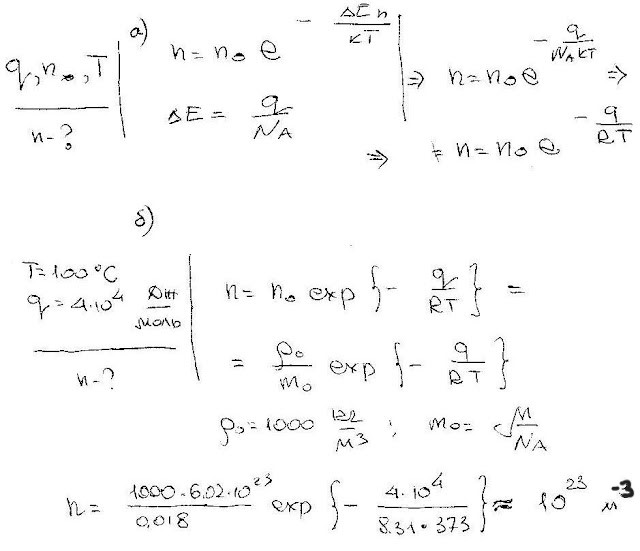 а)
q, n₀, T
n-?
n = n₀ e^{- ΔEп/кT}
ΔE = q/N_A
⇒ n = n₀ e^{- q/N_A кT} ⇒
⇒ n = n₀ e^{- q/RT}
б)
T = 100°C
q = 4·10⁴ Дж/моль
n-?
n = n₀ exp {- q/RT} =
= ρ₀/m₀ exp {- q/RT}
ρ₀ = 1000 кг/м³ ; m₀ = M/N_A
n = 1000·6.02·10²³/0,018 exp {- 4·10⁴/8.31·373} ≈ 10²³ м⁻³